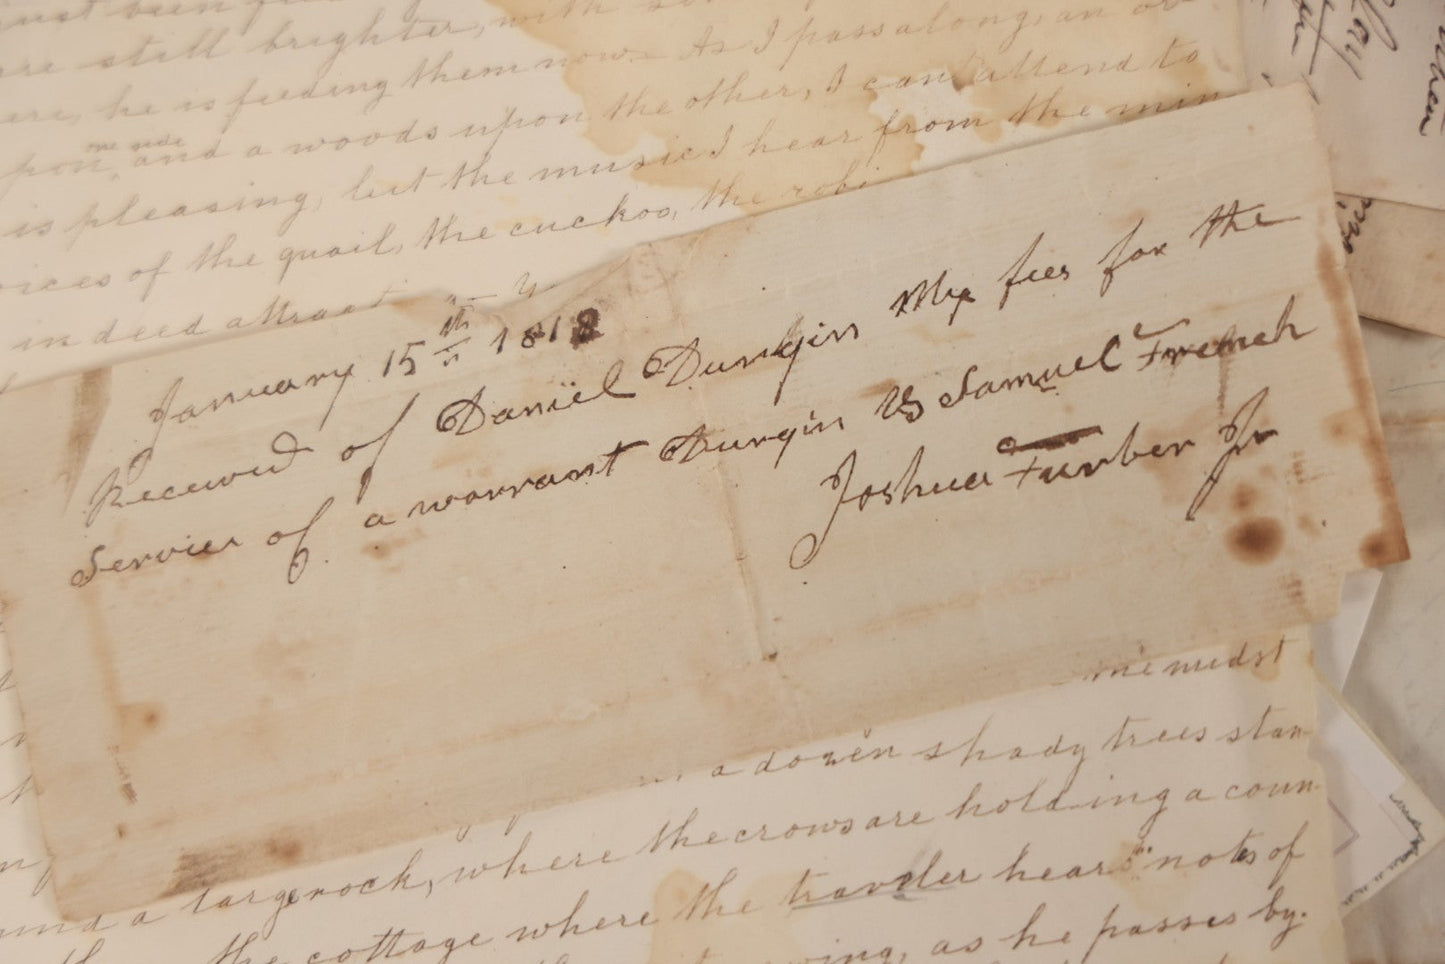 still brighter, with
he is feeding them now. As I pass along, an
one side
and a woods upon the other, I can attend to
is pleasing, but the music I hear from the min
of the quail, the cuckoo, the robi
indeed attract
January 15th 1818
Received of Daniel Durgin My fees for the
Service of a warrant Durgin Vs Samuel French
Joshua Furber Jr
midst
a dozen shady trees stan
and a large rock, where the crows are holding a coun
the cottage where the traveler hears notes of
as he passes by.